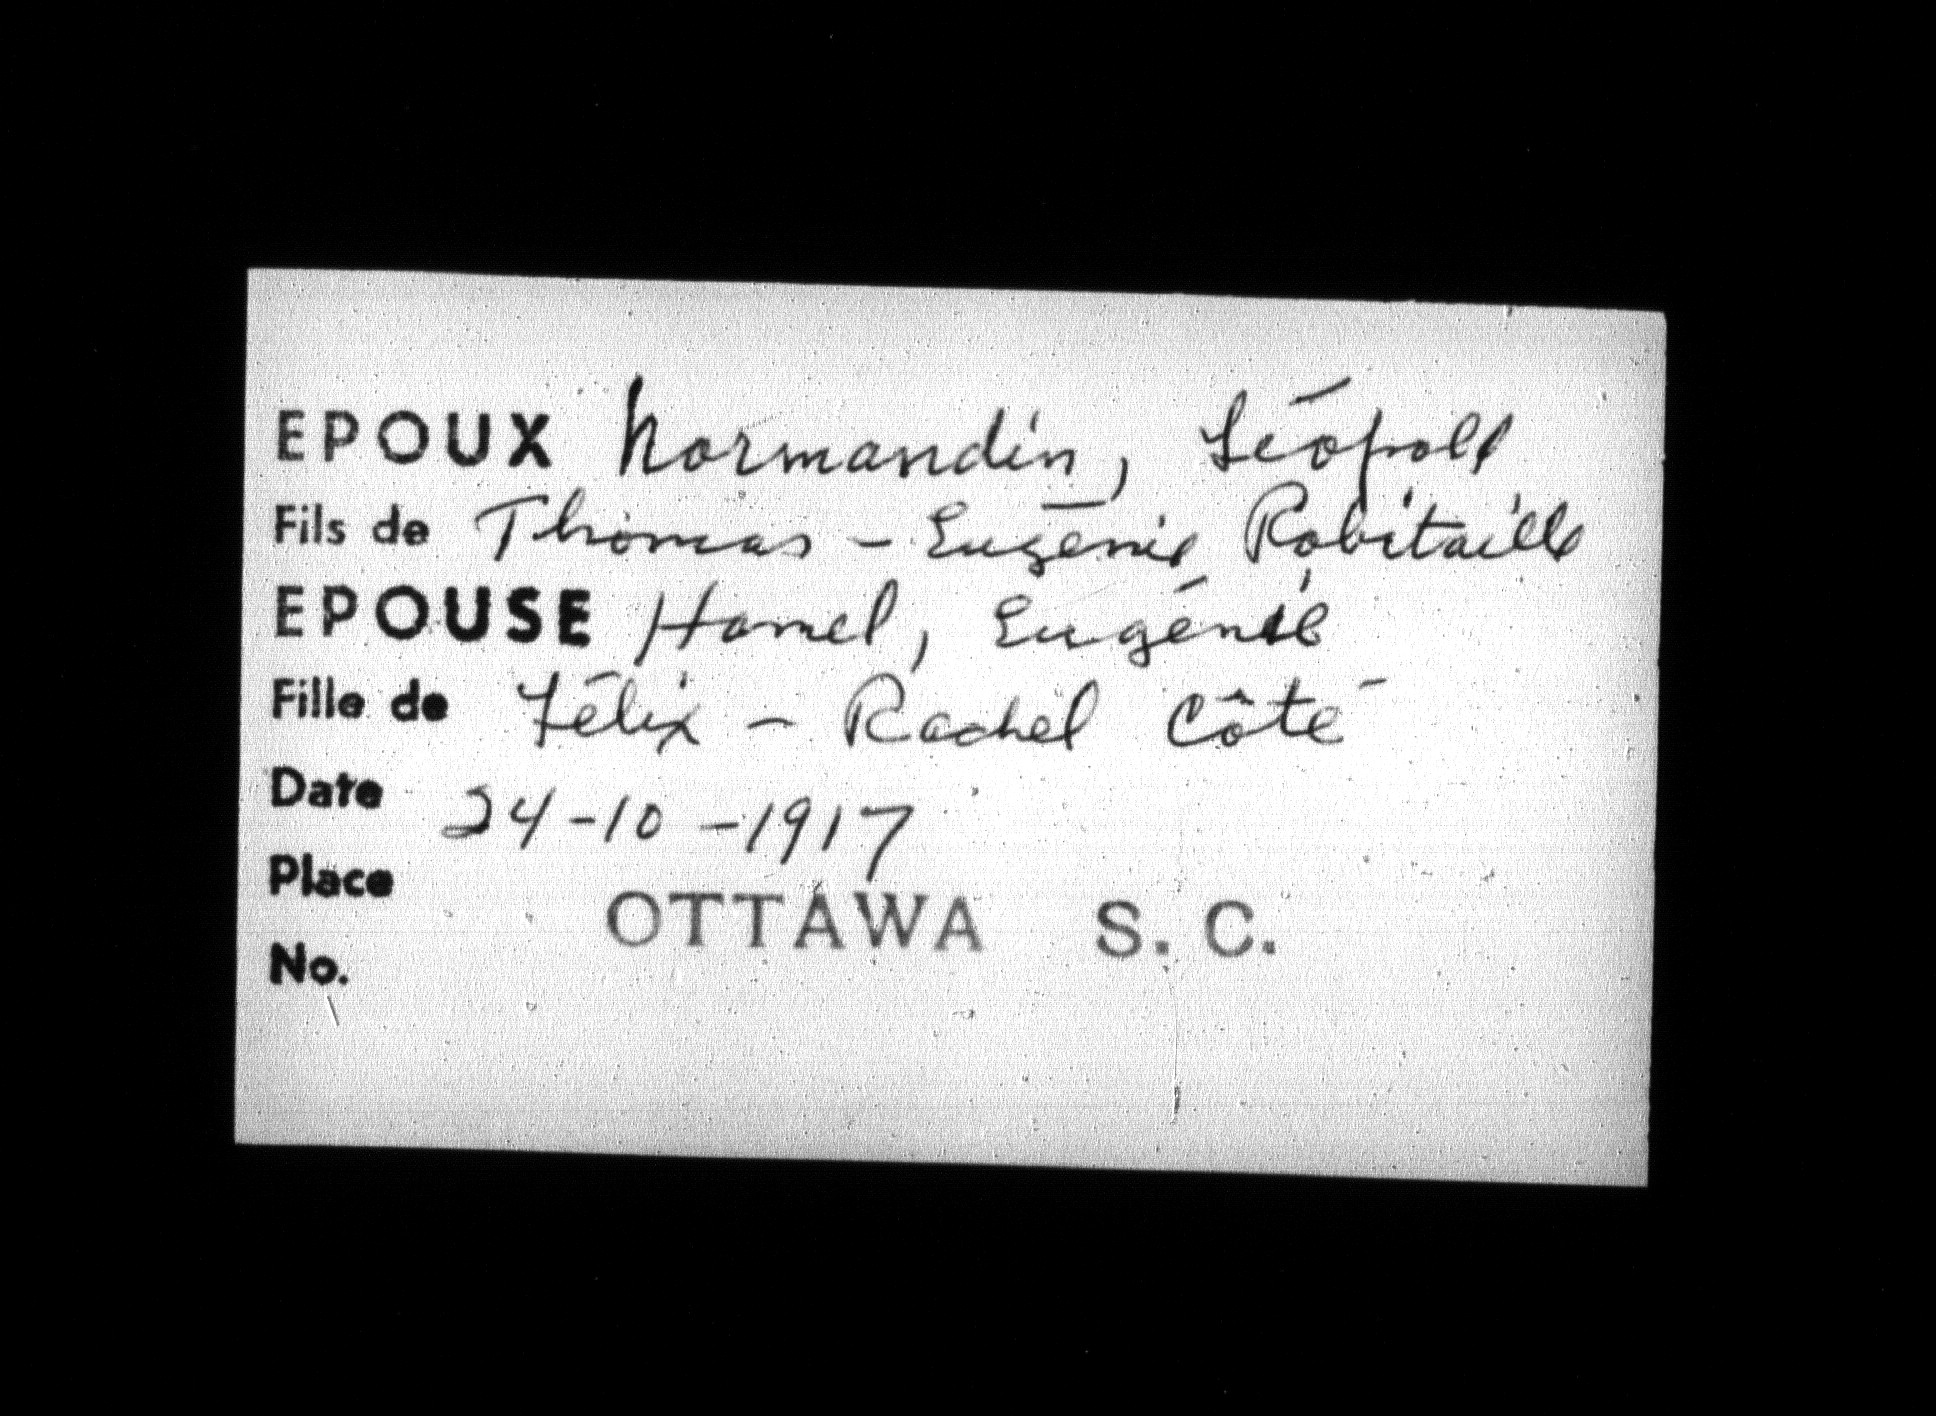 EPOUX Normandin, Léopold
Fils de Thomas - Eugénie Robitaille
EPOUSE Hamel, Eugénie
Fille de Félix - Rachel Côté
Date 24-10-1917
Place OTTAWA S. C.
No.